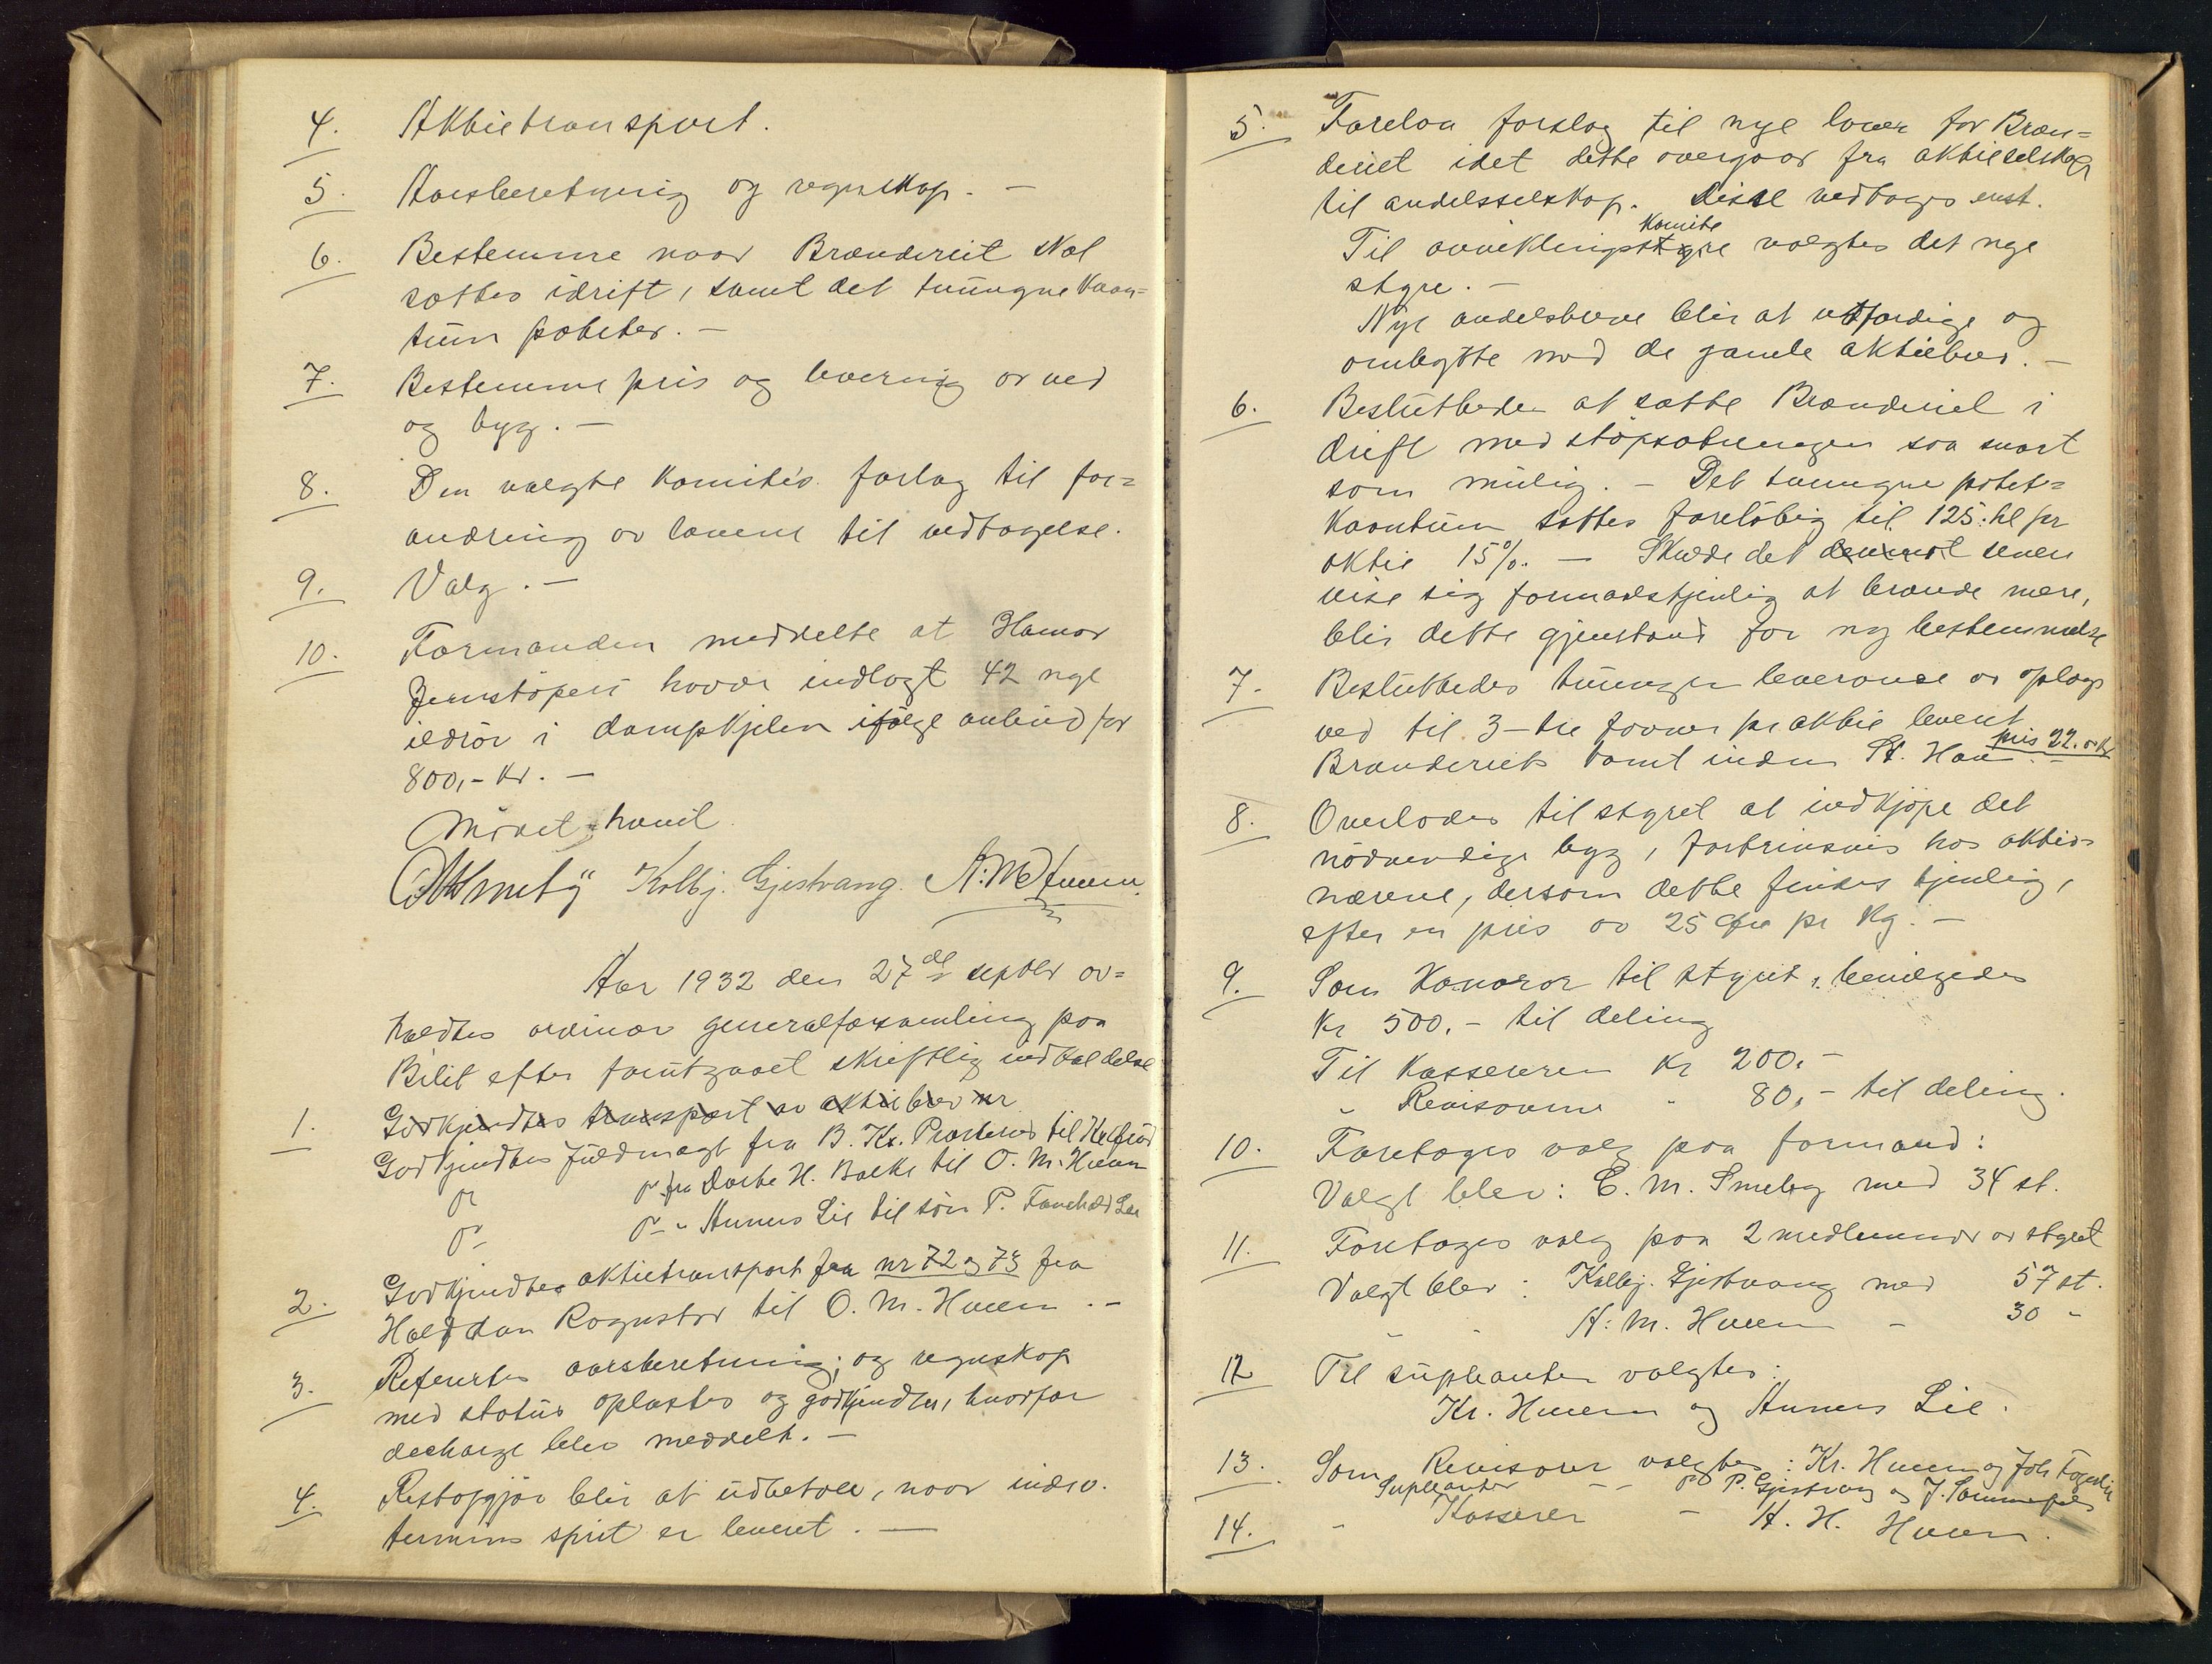 4. Aktietransport.
5. Aarsberetning og regnskap. —
6. Bestemme naar Brænderiet skal
sættes idrift, samt det tvungne kvan=
tum poteter. —
7. Bestemme pris og levering av ved
og byg. —
8. Den valgte Komite's forlag til for=
andring av lovene til vedtagelse.
9. Valg. —
10. Formanden meddelte at Hamar
Jernstøperi havde indlagt 42 nye
ildrør i dampkjelen ifølge anbud for
800,- kr. —
Møtet hævet.
Kolbj. Gjestvang. A. M. Huuen
Aar 1932 den 27de septbr av=
holdtes ordinær generalforsamling paa
Bilit efter forutgaaet skriftlig indkaldelse
1. Godkjendtes transport av aktiebrev nr
Godkjendtes fuldmagt fra B. Kr. til
fra Dorte H. Balke til O. M. Huuen
" Anners Lie til søn P. Lie
2. Godkjendtes aktietransport fra nr 72 og 73 fra
Halfdan Rognstad til O. M. Huuen. —
3. Refertes aarsberetning; og regnskap
med status oplæstes og godkjendtes, hvorfor
decharge blev meddelt. —
4. Restopgjør blir at utbetale, naar indev.
termins sprit er leveret. —
5. Forelaa forslag til nye lover for Bræn=
deriet idet dette overgaar fra aktieselskap
til andelsselskap. Disse vedtages enst.
Komite
Til avviklingsstyre valgtes det nye
styre. —
Nye andelsbreve blir at utfærdige og
ombytte med de gamle aktiebrev. —
6. Besluttedes at sætte Brænderiet i
drift med støpsætningen saa snart
som mulig. — Det tvungne potet=
kvantum sættes foreløbig til 125 hl pr
aktie 15%. — Skulde det senere
vise sig formaalstjenlig at brænde mere,
blir dette gjenstand for ny bestemmelse
7. Besluttedes tvungen leveranse av oplags
ved til 3-tre favner pr aktie levert
pris 22. kr
Brænderiets tomt inden St. Hans. —
8. Overlodes til styret at indkjøpe det
nødvendige byg, fortrinsvis hos aktio=
nærene, dersom dette findes tjenlig,
efter en pris av 25 øre pr kg. —
9. Som Honorar til styret, bevilgedes
Kr 500.- til deling
Til Kassereren Kr 200.-
" Revisorene " 80,- til deling.
10. Foretages valg paa formand:
Valgt blev: E. M. Smeby med 34 st.
11. Foretages valg paa 2 medlemmer av styret
Valgt blev: Kolbj. Gjestvang med 57 st.
" " A. M. Huuen - 30 "
12 Til supleanter valgtes:
Kr. Huuen og Anners Lie.
13. Som Revisorer valgtes: Kr. Huuen og Joh
Supleanter — " P. Gjestvang og J.
14. " Kasserer — A. H. Huuen.